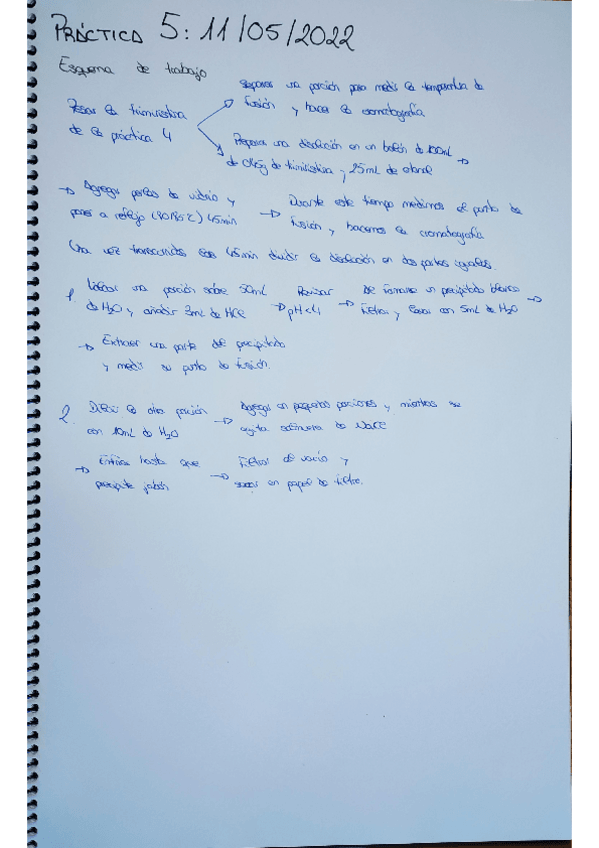 PRÁCTICA 5: 11/05/2022
Esquema de trabajo
Separar una porción para medir la temperatura de
fusión y hacer la cromatografía
Pesar la trimiristina
de la práctica 4
Preparar una disolución en un balón de 100mL →
de trimiristina y 25mL de etanol
→ Agregar perlas de vidrio y
poner a reflujo 45min
→ Durante este tiempo medimos el punto de
fusión y hacemos la cromatografía
Una vez transcurridos esos 45min dividir la disolución en dos partes iguales.
1. una porción sobre 50mL
de H2O y añadir 3mL de HCl
→ Revisar
pH<4
→ De formarse un precipitado blanco →
filtrar y lavar con 5mL de H2O
→ Extraer una parte del precipitado
y medir su punto de fusión.
2. Diluir la otra porción
con 10mL de H2O
→ Agregar en pequeñas porciones y mientras se
agita salmuera de NaCl
→ Enfriar hasta que
precipite jabón
→ Filtrar de vacío y
secar en papel de filtro.